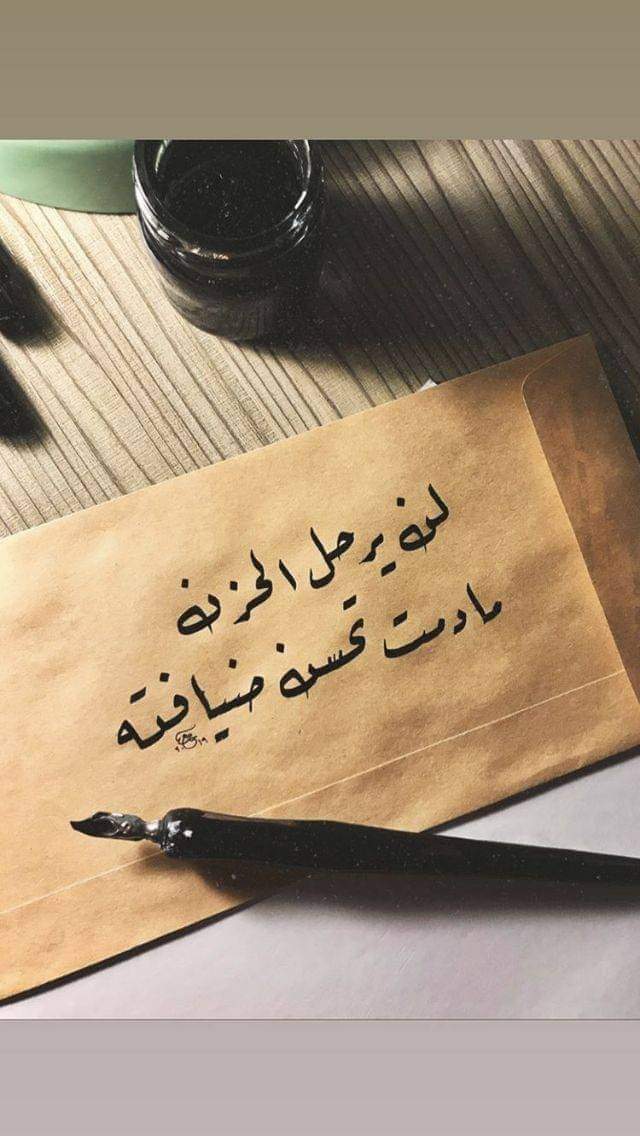 لن يرحل الحزن
مادمت تحسن ضيافته